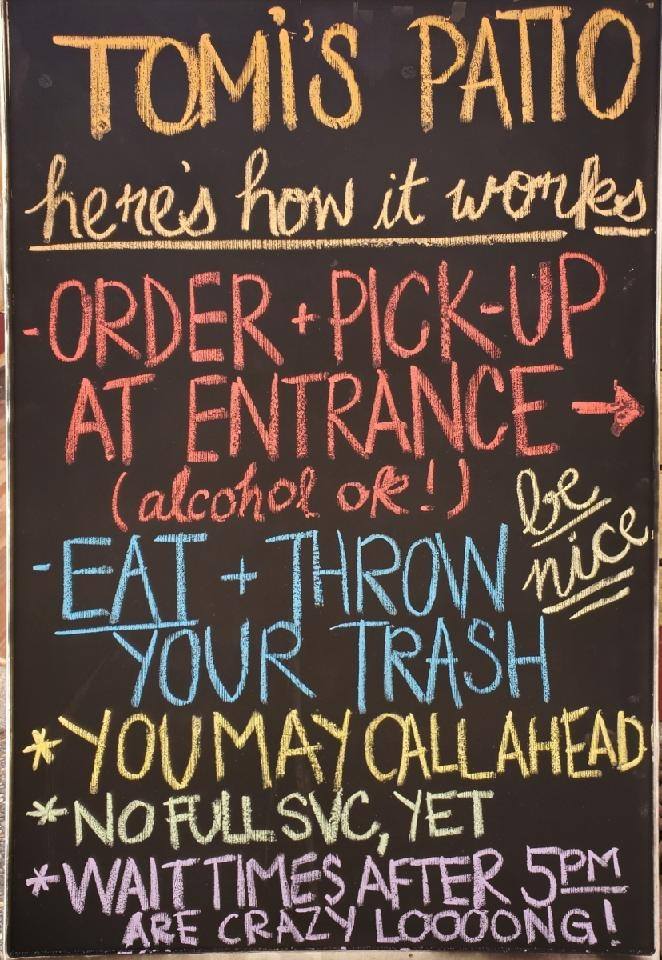 TOMi'S PATIO
here's how it works
-ORDER + PICK-UP
AT ENTRANCE →
(alcohol ok!)
be
nice
-EAT + THROW
YOUR TRASH
*YOU MAY CALL AHEAD
*NO FULL SVC, YET
*WAIT TIMES AFTER 5PM
ARE CRAZY LOOOONG!